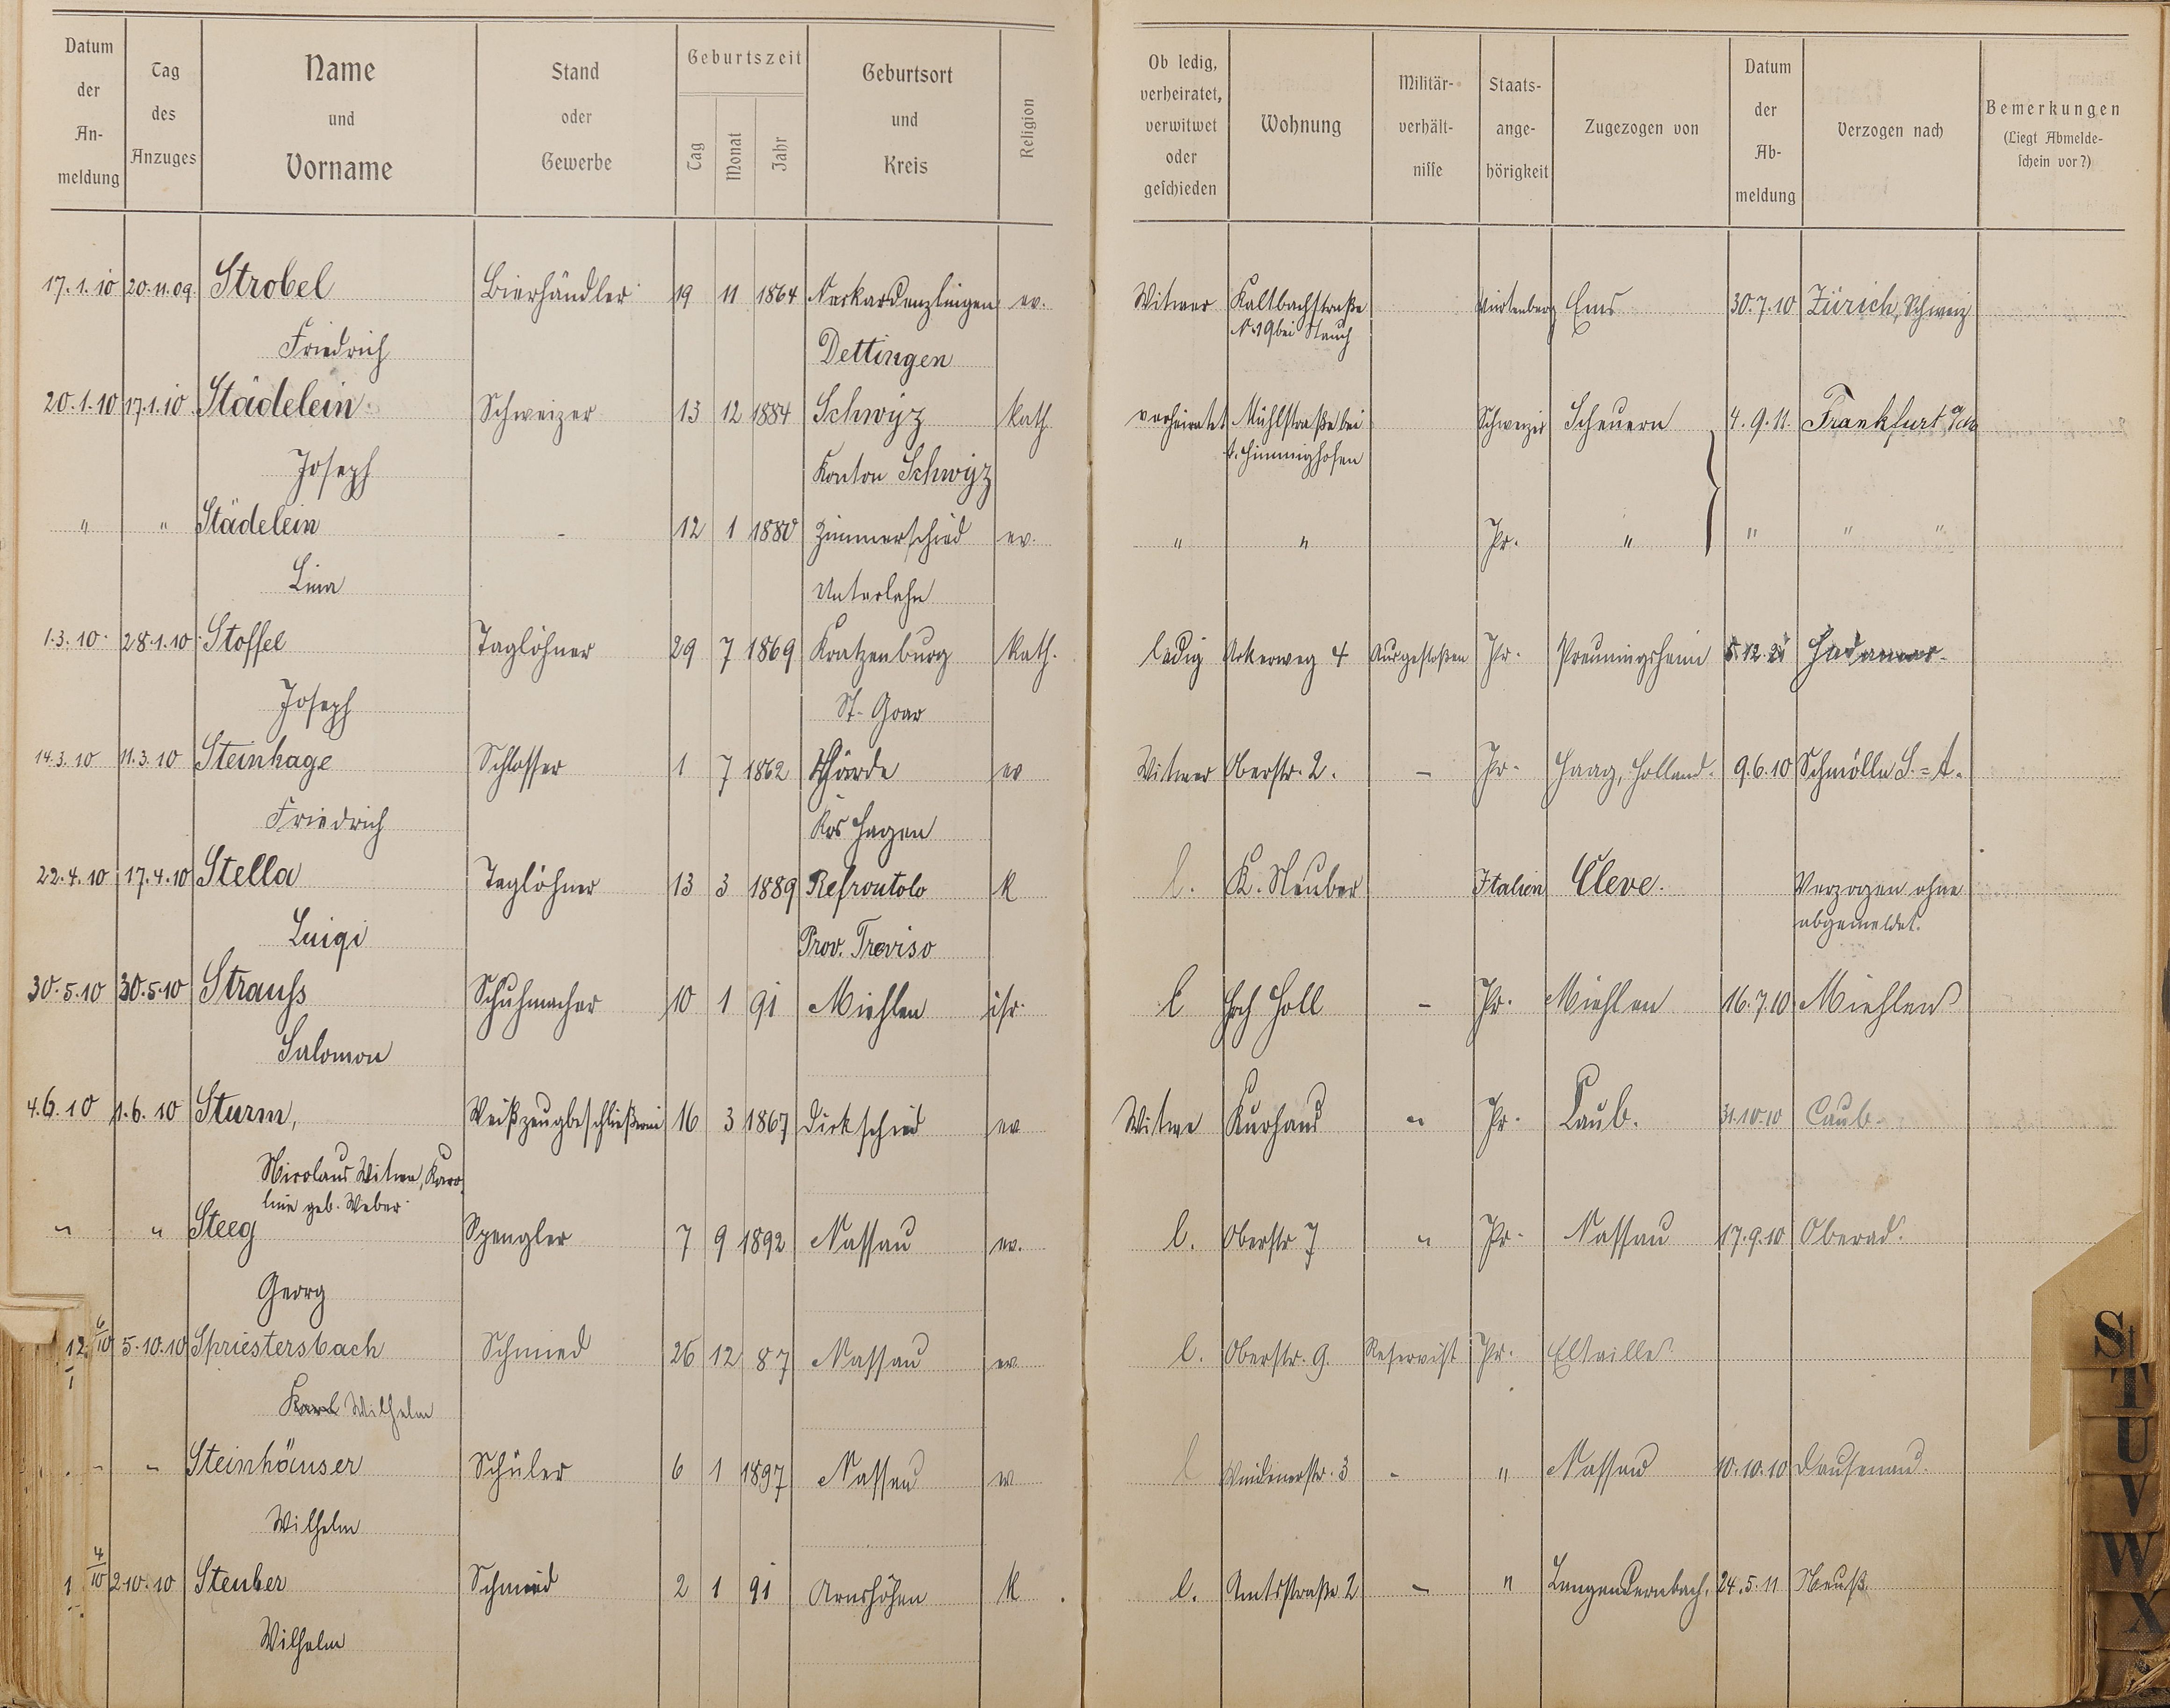 Datum der Anmeldung | Tag des Anzuges | Name und Vorname | Stand oder Gewerbe | Geburtszeit Tag Monat Jahr | Geburtsort und Kreis | Religion | Ob ledig, verheiratet, verwitwet oder geschieden | Wohnung | Militär-verhält-nisse | Staats-ange-hörigkeit | Zugezogen von | Datum der Ab-meldung | Verzogen nach | Bemerkungen (Liegt Abmelde-schein vor?)
17.1.10 20.11.09. Strobel Bierhändler 19 11 1864 ev. Witwer Kaltbachstraße Würtenberg Ems 30.7.10 Zürich, Schweiz
No 19 bei Stauch
Friedrich Dettingen
20.1.10 17.1.10 Städelein Schweizer 13 12 1884 Schwyz Kath. verheiratet Mühlstraße bei Schweizer Scheuern 4.9.11. Frankfurt a/M
Joseph Kanton Schwyz
" " Städelein - 12 1 1880 Zimmerschied ev. " " Pr. " " " "
Lina Unterlahn
1.3.10. 28.1.10. Stoffel Taglöhner 29 7 1869 Kratzenburg Kath. ledig Ackerweg 4 Ausgestoßen Pr. Preungesheim Hadamar
Joseph St. Goar
14.3.10 11.3.10 Steinhage Schlosser 1 7 1862 ev Witwer Oberstr. 2. - Pr. Haag, Holland. 9.6.10 Schmölln S.=A.
Friedrich Krs Hagen
22.4.10 17.4.10 Stella Taglöhner 13 3 1889 Refrontolo K l. K. Neuber Italien Cleve. Verzogen ohne
abgemeldet.
Luigi Prov. Treviso
30.5.10 30.5.10 Strauss Schuhmacher 10 1 91 Miehlen isr. l Hch Holl - Pr. Miehlen 16.7.10 Miehlen
Salomon
4.6.10 1.6.10 Sturm, Weißzeugbeschließerin 16 3 1867 Dickschied ev Witwe Kurhaus " Pr. Caub. 31.10.10 Caub.
Nicolaus Witwe, Karo
line geb. Weber
" " Steeg Spengler 7 9 1892 Nassau ev. l. Oberstr 7 " Pr. Nassau 17.9.10 Oberad.
Georg
12 6/10 5.10.10 Spriestersbach Schmied 26 12 87 Nassau ev l. Oberstr. 9. Reservist Pr. Eltville
Karl Wilhelm
- - Steinhäuser Schüler 6 1 1897 Nassau ev l Windenerstr. 3 - " Nassau 10.10.10 Dausenau.
Wilhelm
4/10 2.10.10 Steuber Schmied 2 1 91 Arnshöfen K l. Amtsstraße 2 - " Langendernbach, 24.5.11 Neuß.
Wilhelm
St
T
U
V
W
X